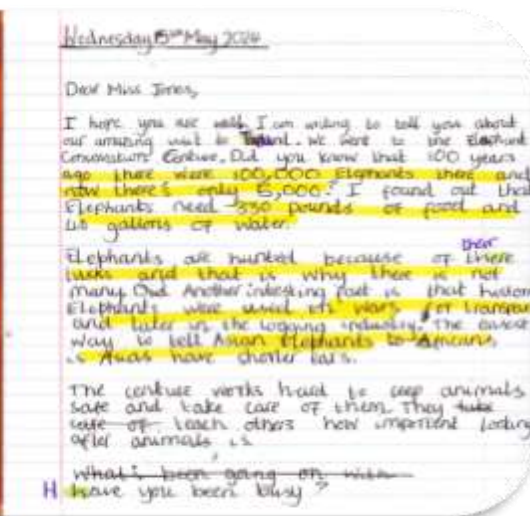 Wednesday 15th May 2024
Dear Miss Jones,
I hope you are well. I am writing to tell you about
our amazing visit to Thailand. We went to the Elephant
Conservation Centure. Did you know that 100 years
ago there were 100,000 Elephants there and
now there's only 6,000? I found out that
Elephants need 330 pounds of food and
40 gallons of water.
their
Elephants are hunted because of there
tusks and that is why there is not
many. Another intresting fact is that
Elephants were used in wars, for transport
and later in the logging industry. The easiest
way to tell Asian Elephants to Africans,
is Asias have shorter ears.
The centure works hard to keep animals
safe and take care of them. They take
care of teach others how important looking
after animals is.
What's been going on with
H have you been busy?